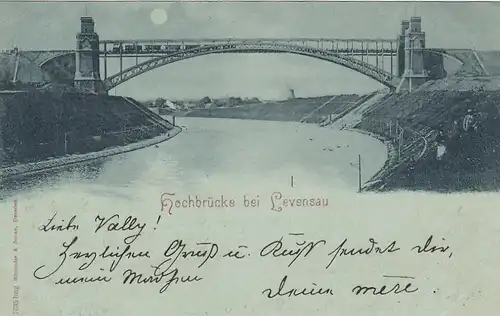 Hochbrücke bei Levensau
Liebe Vally!
Herzlichen Gruß u. Kuß sendet Dir,
mein Mädchen
Deine